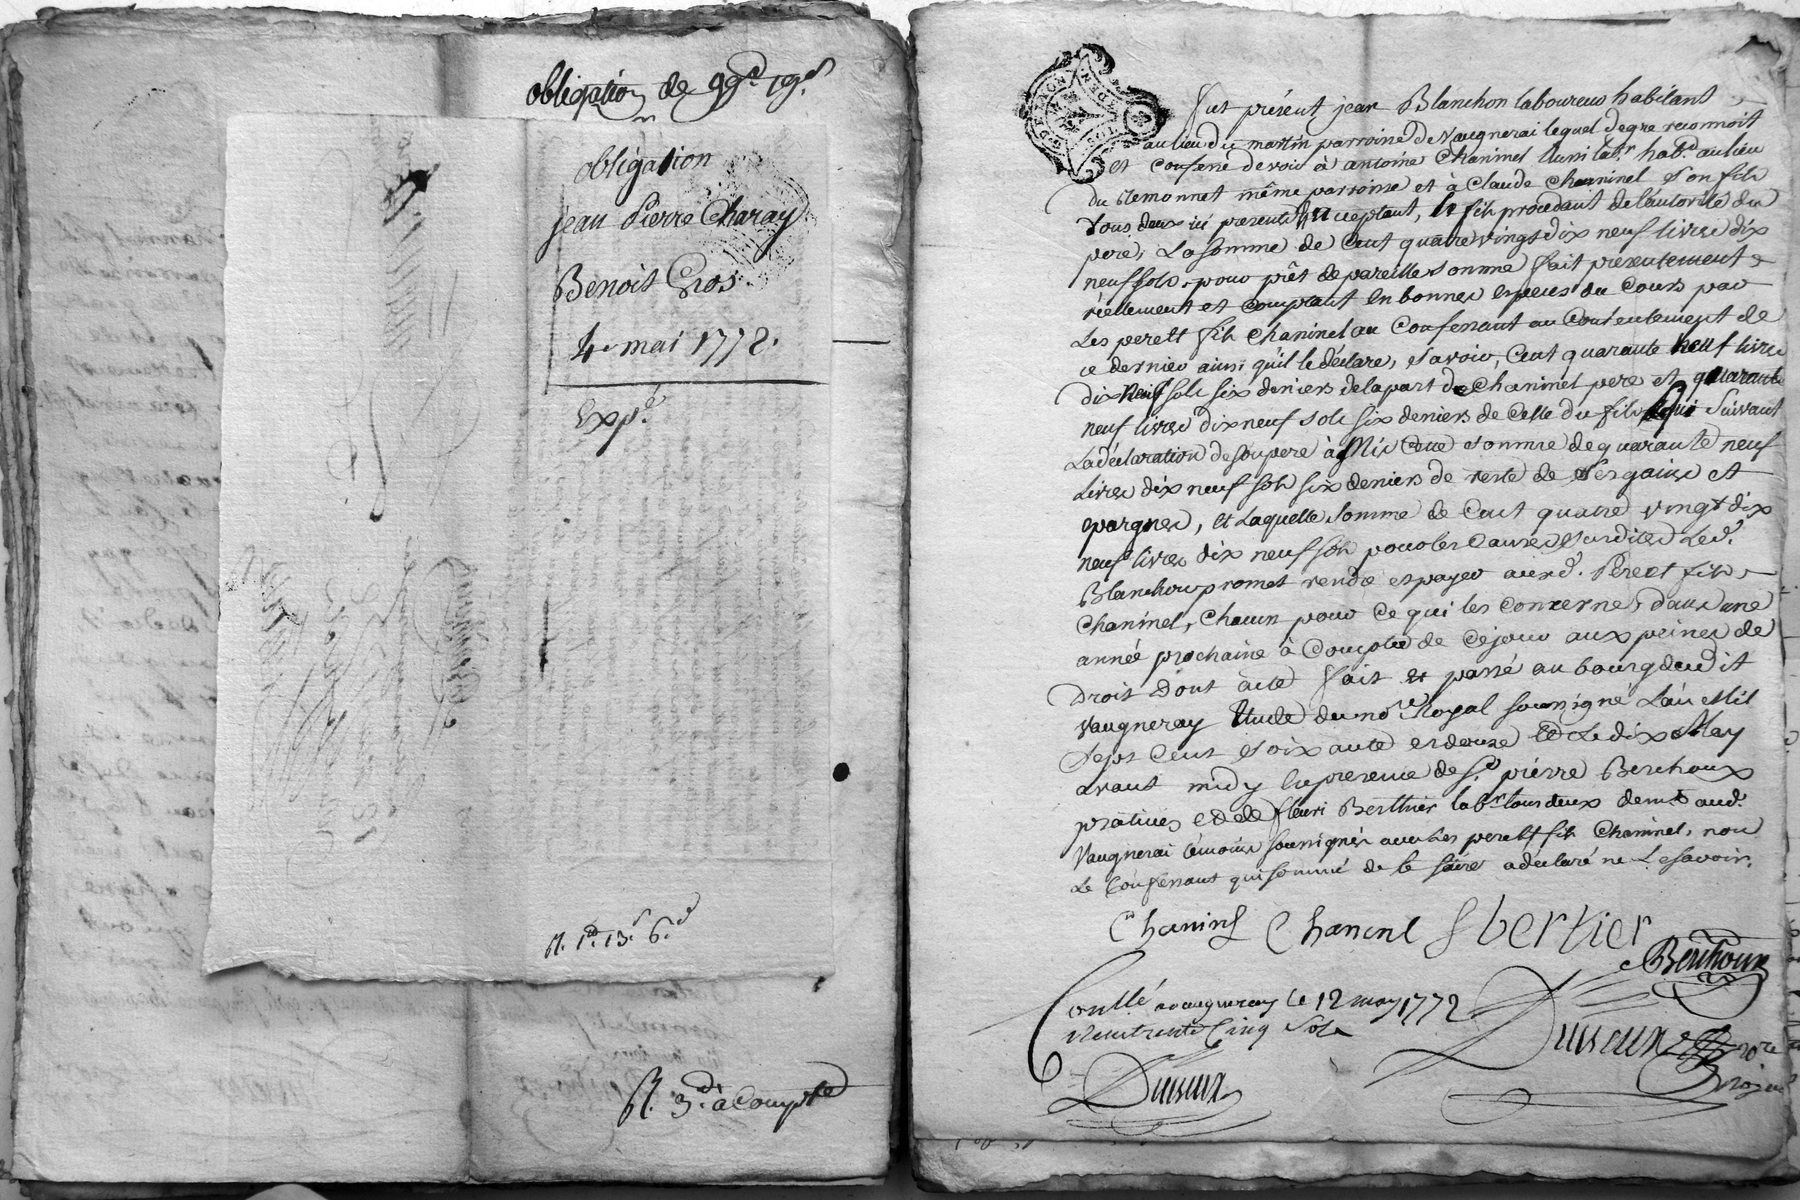 obligation de 99# 19s
obligation
jean Pierre Charay
Benoit Gros
4e mai 1772.
Expé
R. 1# 13s 6d
R. 3# à Compte
Fut présent jean Blanchon laboureur habitant
au lieu du martin parroisse de Vaugnerai lequel de gré reconnoit
et confesse devoir à antoine Chaninel labr. habt. au lieu
du Remonnet même parroisse et à Claude Chaninel son fils
tous deux ici presents acceptant, le fils procedant de l'autorité du
pere, La somme de Cent quatre vingt dix neuf livres dix
neuf sols, pour prêt de pareille somme fait présentement
réellement et comptant en bonnes especes du Cours par
Les pere et fils Chaninel au Confessant au Contentement de
ce dernier ainsi qu'il le déclare, savoir, Cent quarante neuf livres
dix neuf sols six deniers de la part de Chaninel pere et quarante
neuf livres dix neuf sols six deniers de celle du fils qui suivant
La déclaration de son pere à Mis Cette somme de quarante neuf
Livres dix neuf sols six deniers de reste de ses gaines et
epargnes, et Laquelle somme de Cent quatre vingt dix
neuf livres dix neuf sols pour les causes susdites Led.
Blanchon promet rendre et payer auxd. Pere et fils
Chaninel, Chacun pour ce qui les concerne, dans une
année prochaine à Compter de Ce jour aux peines de
Droit dont acte fait et passé au bourg dudit
Vaugneray Etude du nore Royal soussigné L'an Mil
Sept Cent soixante et douze et Le dix May
avant midy en presence de Sr. pierre Berthoux
praticien et de fleuri Berthier labr. tous deux demt. aud.
Vaugnerai témoins soussignés avec Les pere et fils Chaninel, non
Le Confessant qui sommé de le faire a déclaré ne Le savoir.
Chaninel Chaninel f bertier
Berthoux
Conllé a vaugneray le 12 may 1772
Reçu trente Cinq Sols